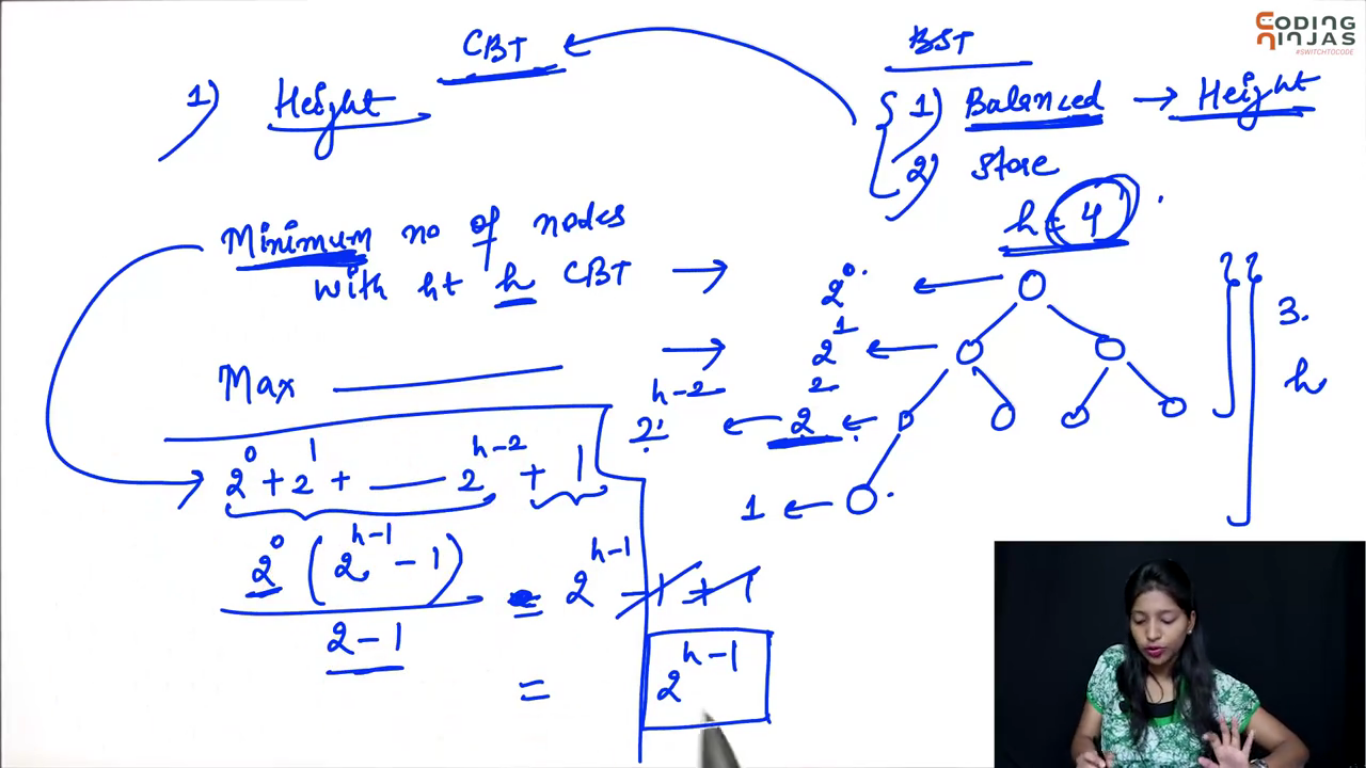 CODING
NINJAS
#SWITCHTOCODE
CBT
BST
1) Height
{ 1) Balanced → Height
2) Store
h = 4
Minimum no of nodes
with ht h CBT → 2^0
Max → 2^1
2^{h-2} ← 2^2
1 ←
3.
h
→ 2^0 + 2^1 + —— 2^{h-2} + 1
2^0 (2^{h-1} - 1) / 2-1 = 2^{h-1} - 1 + 1
= 2^{h-1}